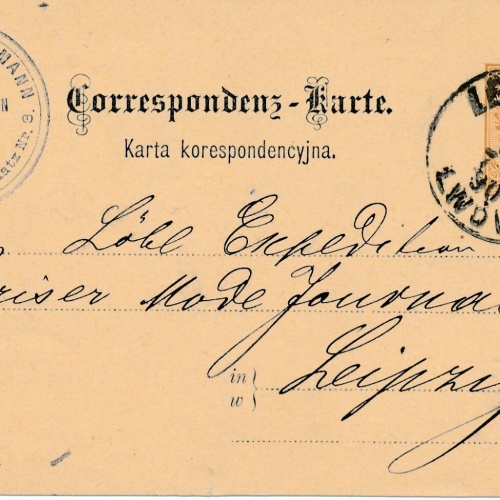 MANN
N
latz Nr. 8.
Correspondenz-Karte.
Karta korespondencyjna.
LE
LWOW
Löbl Expedition
riser Mode Journa
in
w
Leipzig